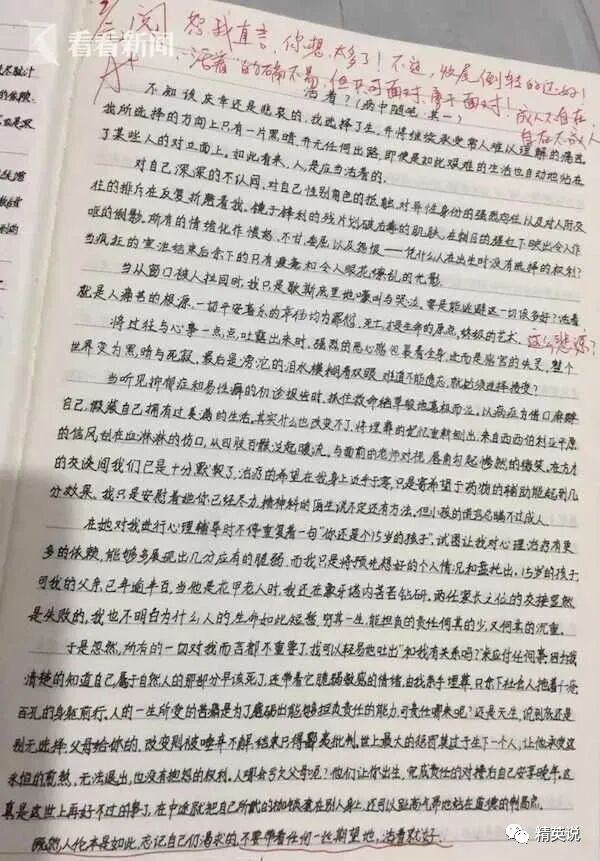 看看新闻
阅
A+
恕我直言,你想太多了!不过,快尾倒转的还好!
"活着"的确不易,但只可面对,勇于面对!
成人不自在,
自在不成人
活着?(病中随笔 其一)
不知该庆幸还是悲哀的,我选择了生,并得继续承受常人难以理解的痛苦
我所选择的方向上只有一片黑暗,并无任何出路,即使是如此艰难的生活也自动地站在
了某些人的对立面上。如此看来,人,是应当活着的。
对自己深深的不认同,对自己性别角色的抵触,对异性身份的强烈向往以及对人际交
往的排斥在反复折磨着我。镜子锋利的残片划破苍青的肌肤,在朝日的猩红下映出令人作
呕的倒影。所有的情绪化作愤怒、不甘、委屈以及怨恨——凭什么人在出生时没有选择的权利?
当疯狂的宣泄结束后余下的只有疲惫和令人眼花缭乱的光影
当从窗口被人拉回时,我只是歇斯底里地嚎叫与哭泣。要是能逃避这一切该多好?活着
就是人痛苦的根源,一切平安喜乐的享循均为罪恶,死亡才是生命的原点,终极的艺术。
这么悲凉?
将过往与心事一点点吐露出来时,强烈的恶心喘包裹着全身,进而是感官的失灵,整个
世界变为黑暗与死寂,最后是滂沱的泪水模糊着双眼,难道不能遗忘,就必须选择接受?
当听见抑郁症和易性癖的初诊报告时,抓住救命稻草般地喜极而泣。以病症为借口麻醉
自己,假装自己拥有过美满的生活。其实什么也改变不了,将埋葬的记忆重新刨出,来自西西伯利亚平原
的信风刮在血淋淋的伤口,从四肢百骸泛起暖流。与面前的老师对视,唇角勾起惨然的微笑。在方才
的交谈间我们已是十分默契了,治疗的希望在我身上近乎于零,只是寄希望于药物的辅助能起到几
分效果。我只是安慰着她你已经尽力,精神科的医生说不定还有方法,但小孩的谎言总瞒不过成人。
在她对我进行心理辅导时不停重复着一句"你还是个15岁的孩子",试图让我对心理治疗有更
多的依赖,能够多展现出几分应有的脆弱。而我只是将预先想好的个人情况和盘托出。15岁的孩子
可我的父亲已年逾半百,当他是花甲老人时,我还在象牙塔内苦苦钻研。两任家长之位的交接显然
是失败的,我也不明白为什么人的生命如此短暂,穷其一生,能担负的责任何其的少,又何其的沉重。
于是忽然,所有的一切对我而言都不重要了,我可以轻易地吐出"和我有关系吗?"来应付任何事,因为我
清楚的知道自己属于自然人的那部分早该死了,还带着它脆弱敏感的情绪,由我亲手埋葬,只余下社会人拖着千疮
百孔的身躯前行。人的一生所受的苦痛是为了磨砺出能够担负责任的能力,可责任哪来呢?还是天生,说到底还是
别无选择。父母给你的,改变则被唾弃不解,结束只得鄙夷批判,世上最大的惩罚莫过于生下一个人,让他承受这
永恒的煎熬,无法退出,也没有抱怨的权利。人哪会亏欠父母呢?他们让你出生,完成责任的对接后自己安享晚年,这
真是这世上再好不过的事了,在中途就把自己所戴的枷锁套在别人身上,还可以趾高气昂地站在道德的制高点。
既然人伦本是如此,忘记自己仍渴求的,不要带着任何一丝期望地,活着就好。
精英说